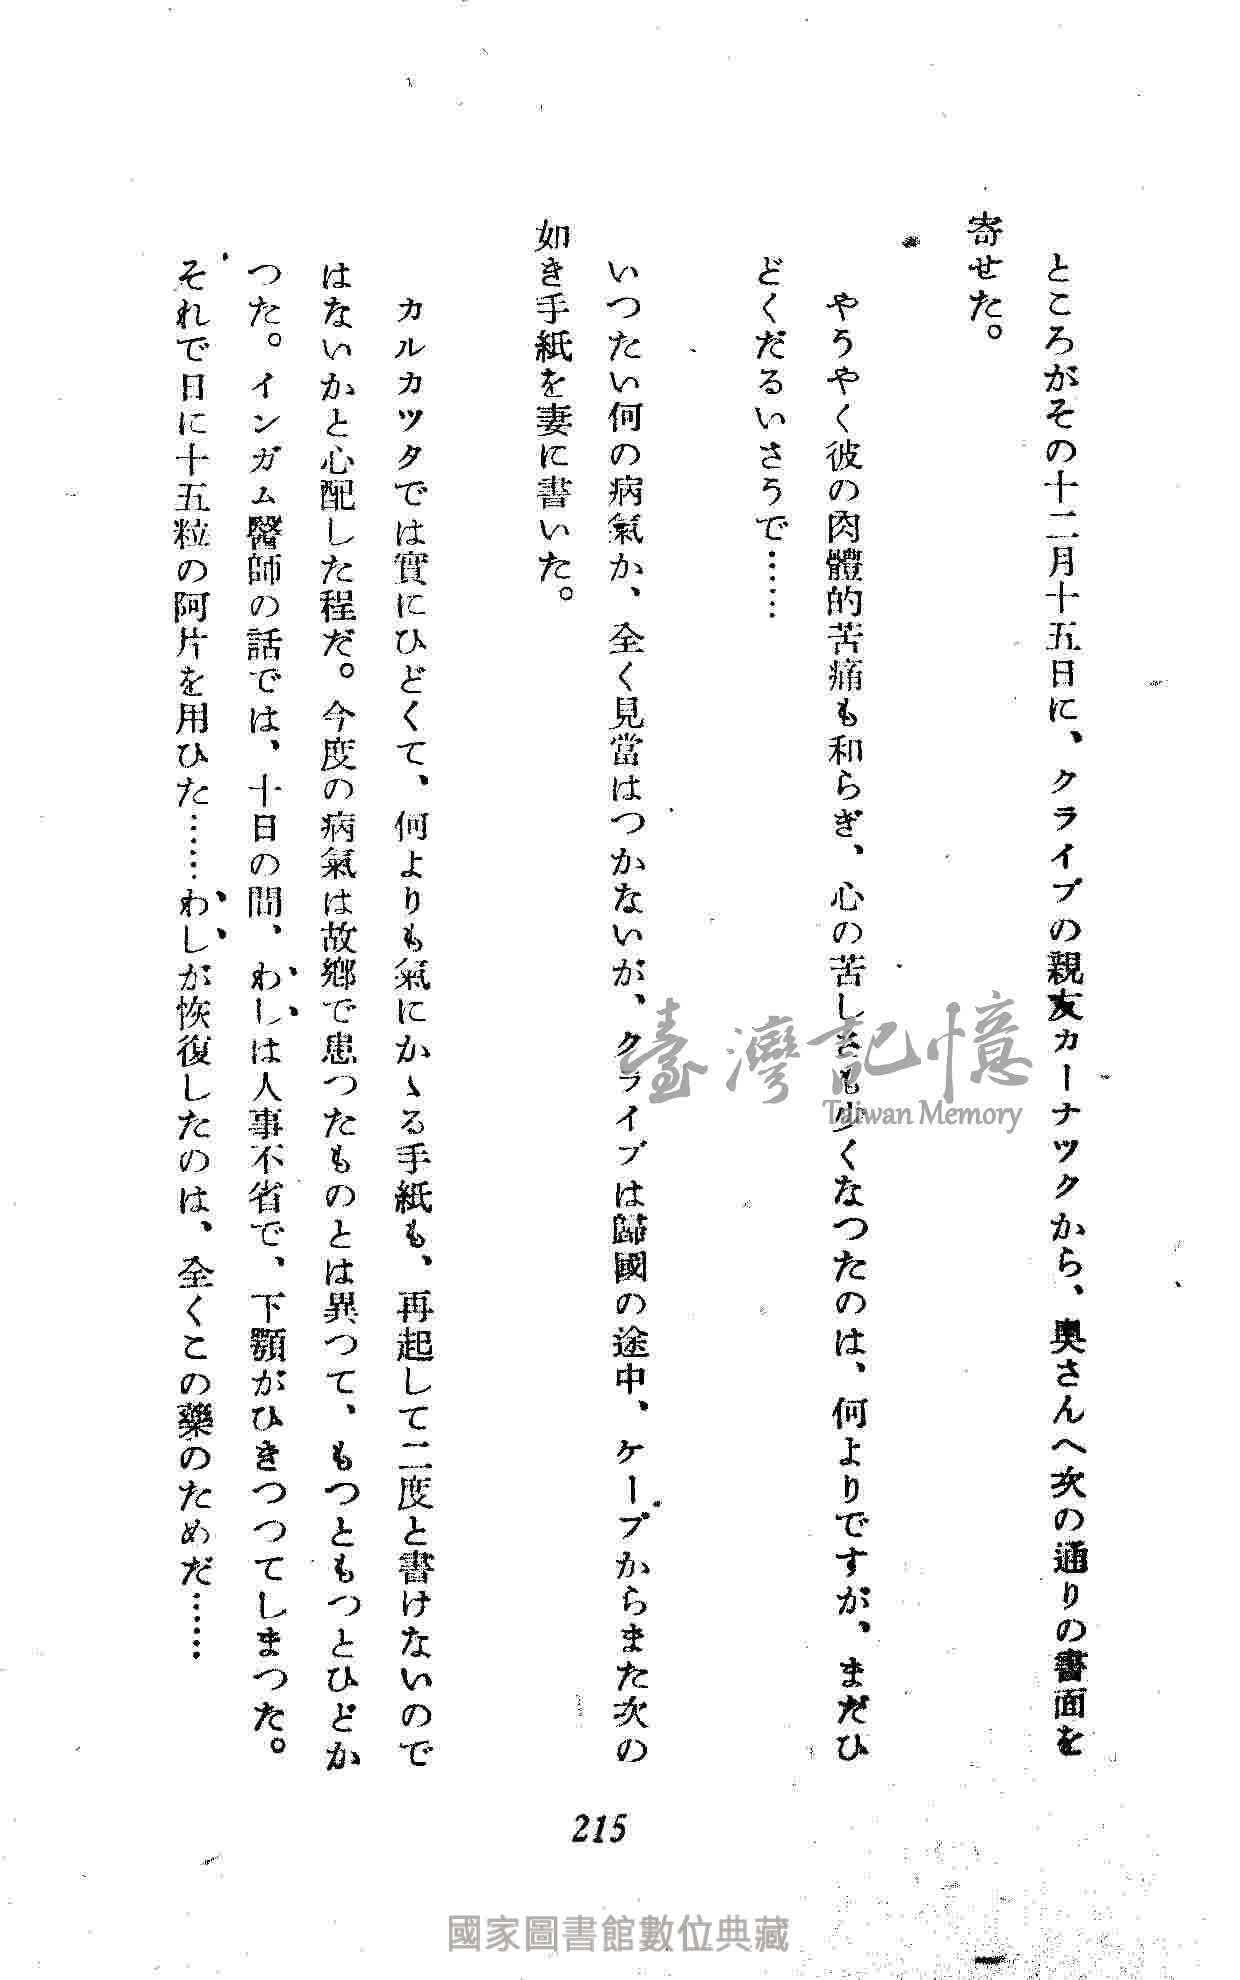 ところがその十二月十五日に、クライブの親友カーナツクから、奥さんへ次の通りの書面を
寄せた。
やうやく彼の肉體的苦痛も和らぎ、心の苦しさも少くなつたのは、何よりですが、まだひ
どくだるいさうで……
いつたい何の病氣か、全く見當はつかないが、クライブは歸國の途中、ケープからまた次の
如き手紙を妻に書いた。
カルカツタでは實にひどくて、何よりも氣にかゝる手紙も、再起して二度と書けないので
はないかと心配した程だ。今度の病氣は故鄕で患つたものとは異つて、もつともつとひどか
つた。インガム醫師の話では、十日の間、わしは人事不省で、下顎がひきつつてしまつた。
それで日に十五粒の阿片を用ひた……わしが恢復したのは、全くこの藥のためだ……
215
臺灣記憶
Taiwan Memory
國家圖書館數位典藏